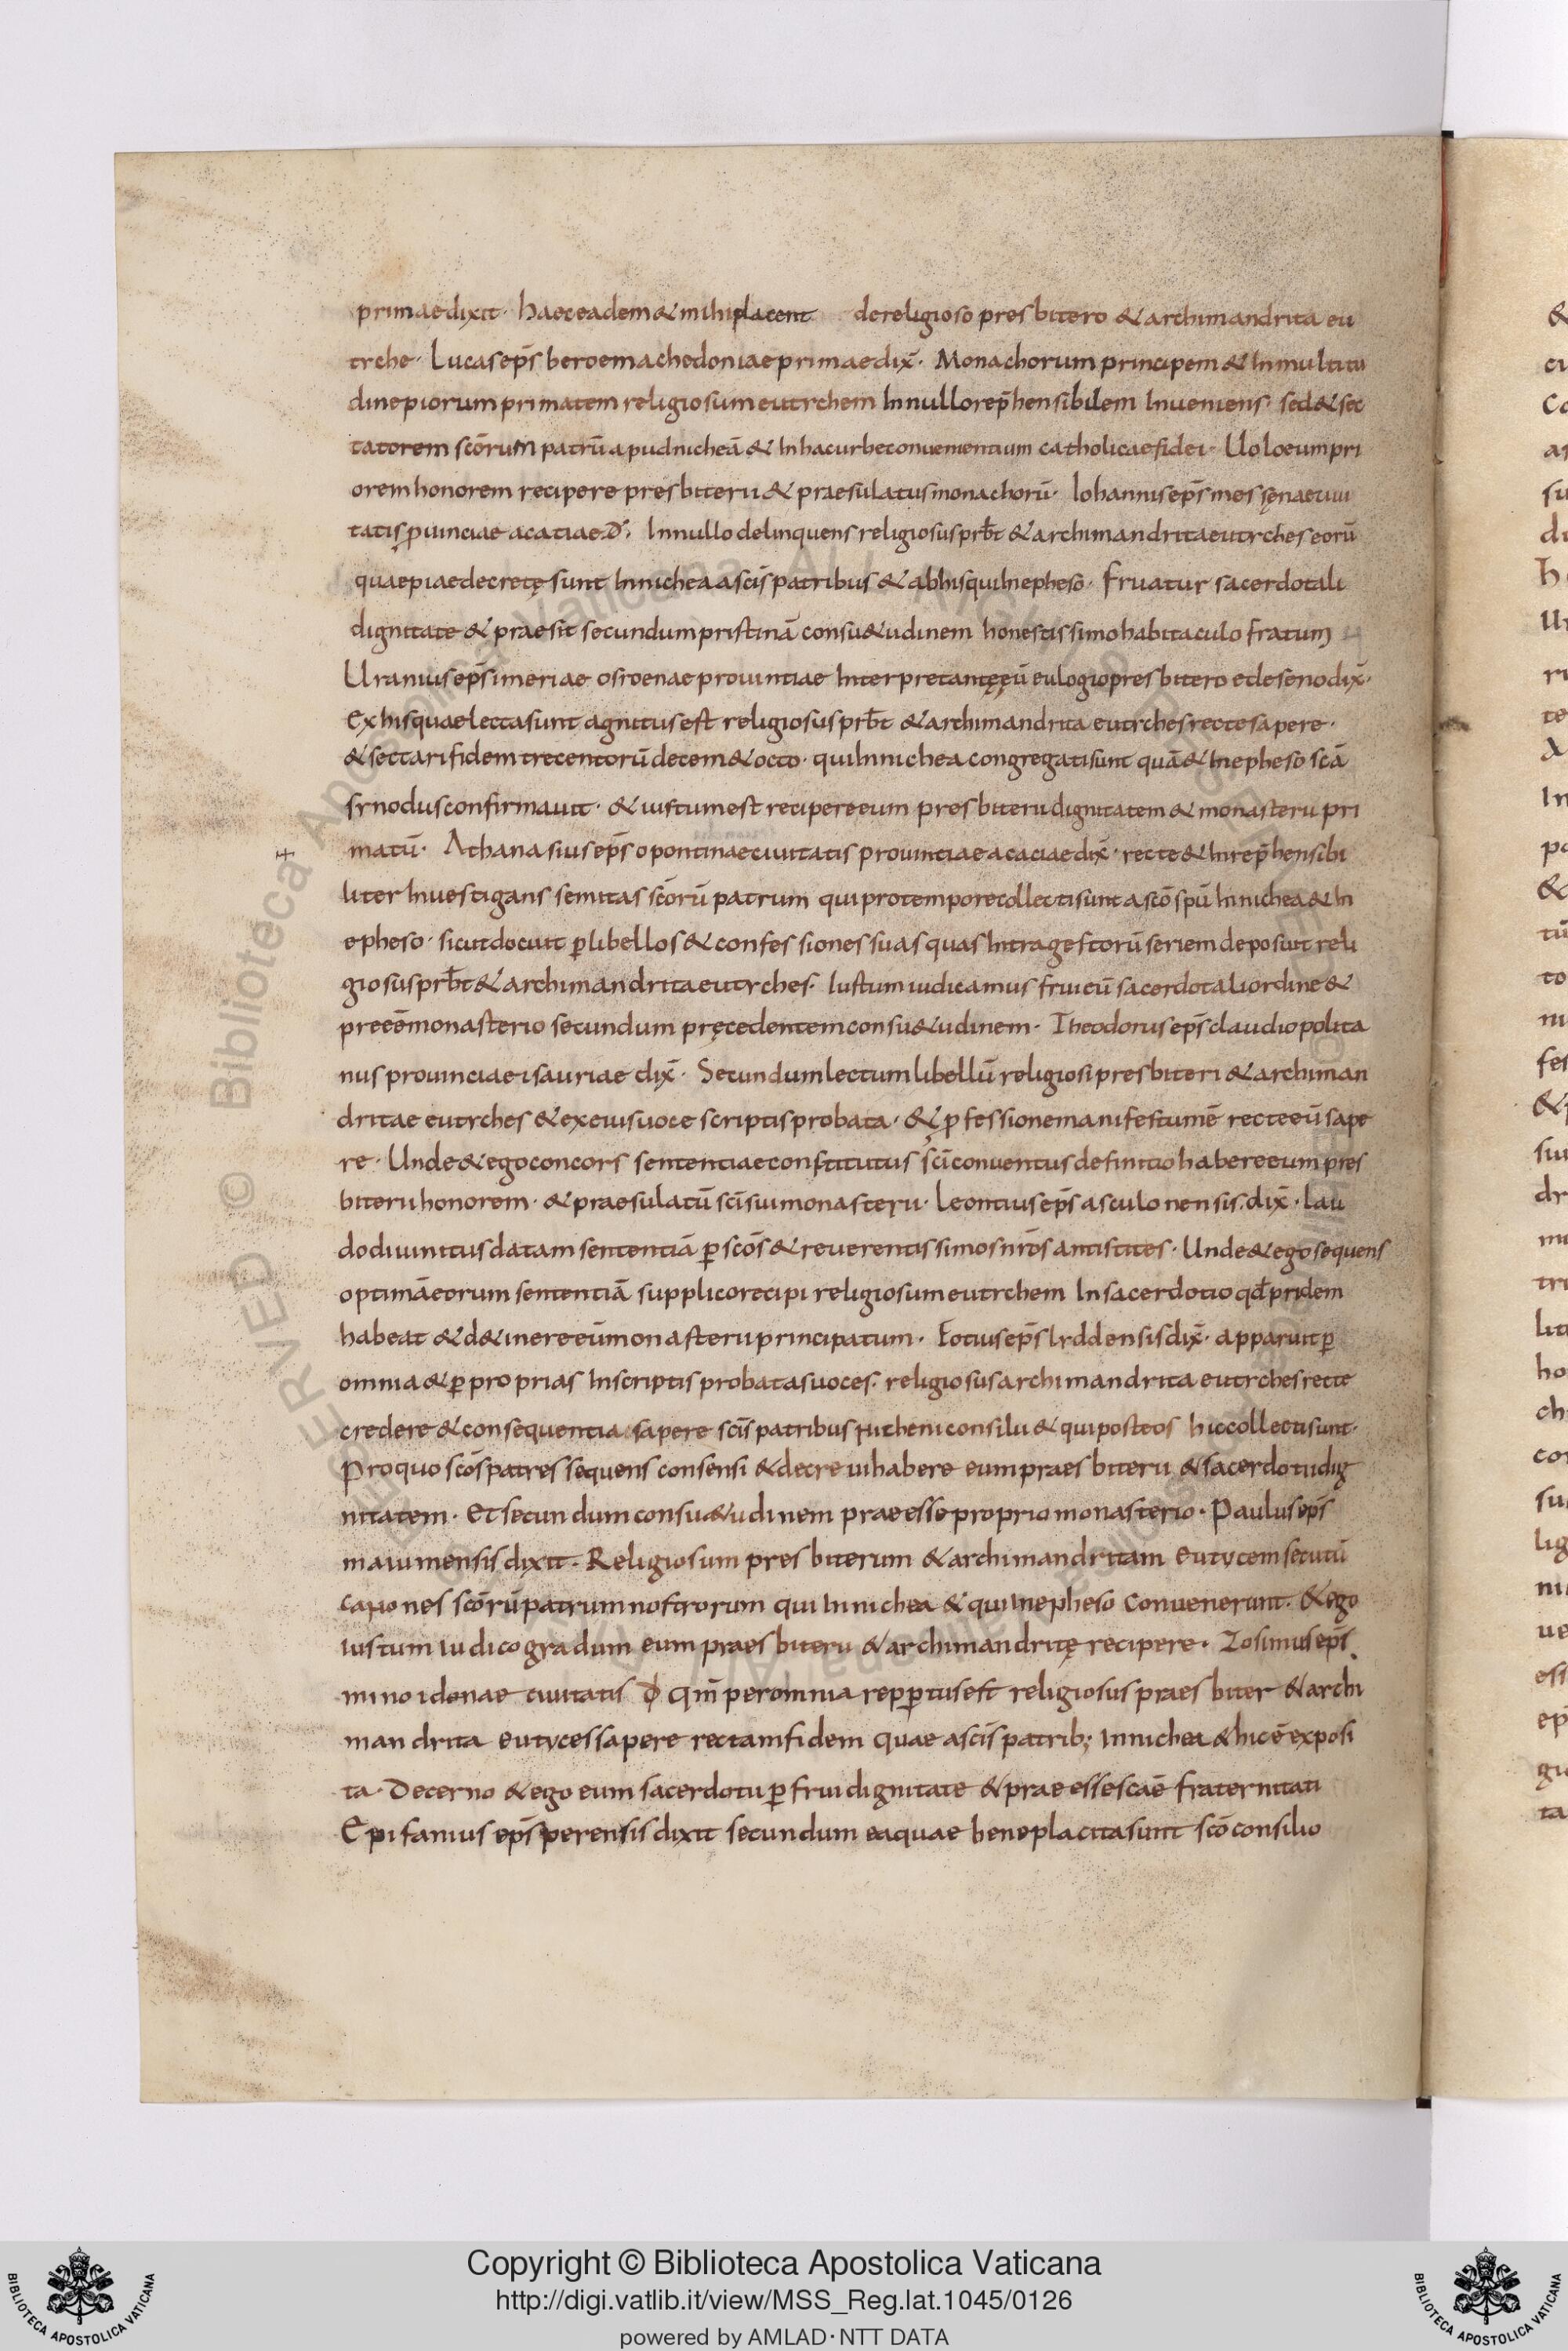 primae dixit· haec eadem & mihi placent de religioso presbitero & archimandrita eu
tyche· Lucas ep̄s beroe machedoniae primae dix̄· Monachorum principem & In multitu
dine piorum primatem religiosum eutychem In nullo rep̄hensibilem Inueniens· sed & sec
tatorem scōrum patrū apud nicheā & In hac urbe conuenientium catholicae fidei· Uolo eum pri
orem honorem recipere presbiterii & praesulatus monachorū· Iohannis ep̄s messęnae ciui
tatis ꝓuinciae acatiae d̄· In nullo delinquens religiosus prb̄t & archimandrita eutyches eorū
quae piae decretę sunt In nichea a scīs patribus & ab his qui In epheso· fruatur sacerdotali
dignitate & praesit secundum pristinā consu&udinem honestissimo habitaculo fratum
Uranius ep̄s imeriae osroenae prouintiae Interpretantę eū eulogio presbitero edeseno dix̄·
Ex his quae lecta sunt agnitus est religiosus prb̄t & archimandrita eutyches recte sapere·
& sectari fidem trecentorū decem & octo· qui In nichea congregati sunt quā & In epheso scā
synodus confirmauit· & iustum est recipere eum presbiterii dignitatem & monasterii pri
matū· Athanasius ep̄s opontinae ciuitatis prouinciae acaciae dix̄· recte & Inrep̄hensibi
liter Inuestigans semitas scōrū patrum qui pro tempore collecti sunt a scō spū In nichea & In
epheso· sicut docuit ꝑ libellos & confessiones suas quas Intra gestorū seriem deposuit reli
giosus prb̄t & archimandrita eutyches· Iustum iudicamus frui eū sacerdotali ordine &
preeē monasterio secundum pręcedentem consu&udinem· Theodorus ep̄s claudiopolita
nus prouinciae isauriae dix̄· Secundum lectum libellū religiosi presbiteri & archiman
dritae eutyches & ex eius uoce scriptis probata· & ꝓfessione manifestum ē recte eū sape
re· Unde & ego concors sententiae constitutus scī conuentus definitio habere eum pres
biterii honorem· & praesulatū scī sui monasterii· Leontius ep̄s asculonensis dix̄· lau
do diuinitus datam sententiā ꝑ scōs & reuerentissimos nr̄os antistites· Unde & ego sequens
optimā eorum sententiā supplico recipi religiosum eutychem In sacerdotio qd̄ pridem
habeat & d&inere eū monasterii principatum· Fotius ep̄s lyddensis dix̄· apparuit ꝑ
omnia & ꝑ proprias In scriptis probatas uoces· religiosus archimandrita eutyches recte
credere & consequentia sapere scīs patribus nicheni consilii & qui post eos hic collecti sunt·
Pro quo scōs patres sequens consensi & decreui habere eum praesbiterii & sacerdotii dig
nitatem· Et secundum consu&udinem praeesse proprio monasterio· Paulus ep̄s
maiumensis dixit· Religiosum presbiterum & archimandritam eutycem secutū
canones scōrū patrum nostrorum qui In nichea & qui In epheso conuenerunt· & ego
iustum iudico gradum eum praesbiterii & archimandritę recipere· Zosimus ep̄s
minoidonae ciuitatis d̄ Qm̄ per omnia repꝑtus est religiosus praesbiter & archi
mandrita eutyces sapere rectam fidem quae a scīs patrib; In nichea & hic ē exposi
ta· Decerno & ego eum sacerdotii ꝑfrui dignitate & praeesse scāe fraternitati
Epifanius ep̄s perensis dixit secundum ea quae bene placita sunt scō consilio
Copyright © Biblioteca Apostolica Vaticana
http://digi.vatlib.it/view/MSS_Reg.lat.1045/0126
powered by AMLAD·NTT DATA